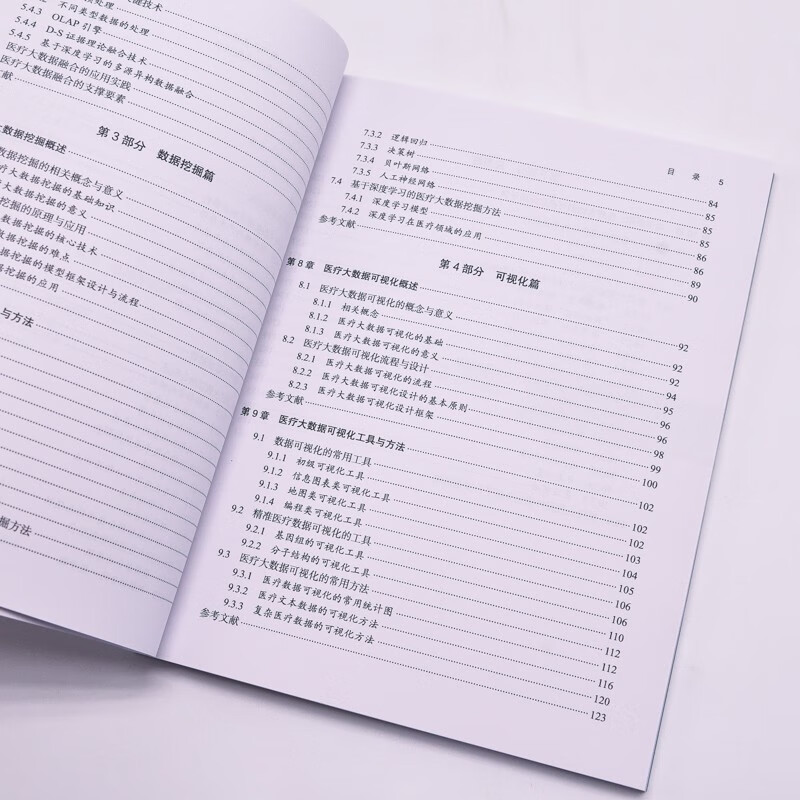 不同类型数据的处理
5.4.3 OLAP 引擎
5.4.4 D-S 证据理论融合技术
5.4.5 基于深度学习的多源异构数据融合
医疗大数据融合的应用实践
医疗大数据融合的支撑要素
第 3 部分 数据挖掘篇
大数据挖掘概述
数据挖掘的相关概念与意义
疗大数据挖掘的基础知识
大数据挖掘的意义
挖掘的原理与应用
数据挖掘的核心技术
数据挖掘的难点
据挖掘的模型框架设计与流程
据挖掘的应用
与方法
掘方法
目 录 5
7.3.2 逻辑回归 84
7.3.3 决策树 85
7.3.4 贝叶斯网络 85
7.3.5 人工神经网络 85
7.4 基于深度学习的医疗大数据挖掘方法 86
7.4.1 深度学习模型 86
7.4.2 深度学习在医疗领域的应用 89
参考文献 90
第 4 部分 可视化篇
第 8 章 医疗大数据可视化概述 92
8.1 医疗大数据可视化的概念与意义 92
8.1.1 相关概念 92
8.1.2 医疗大数据可视化的基础 94
8.1.3 医疗大数据可视化的意义 95
8.2 医疗大数据可视化流程与设计 96
8.2.1 医疗大数据可视化的流程 96
8.2.2 医疗大数据可视化设计的基本原则 98
8.2.3 医疗大数据可视化设计框架 99
参考文献 100
第 9 章 医疗大数据可视化工具与方法 102
9.1 数据可视化的常用工具 102
9.1.1 初级可视化工具 102
9.1.2 信息图表类可视化工具 103
9.1.3 地图类可视化工具 104
9.1.4 编程类可视化工具 105
9.2 精准医疗数据可视化的工具 106
9.2.1 基因组的可视化工具 106
9.2.2 分子结构的可视化工具 110
9.3 医疗大数据可视化的常用方法 112
9.3.1 医疗数据可视化的常用统计图 112
9.3.2 医疗文本数据的可视化方法 116
9.3.3 复杂医疗数据的可视化方法 120
参考文献 123